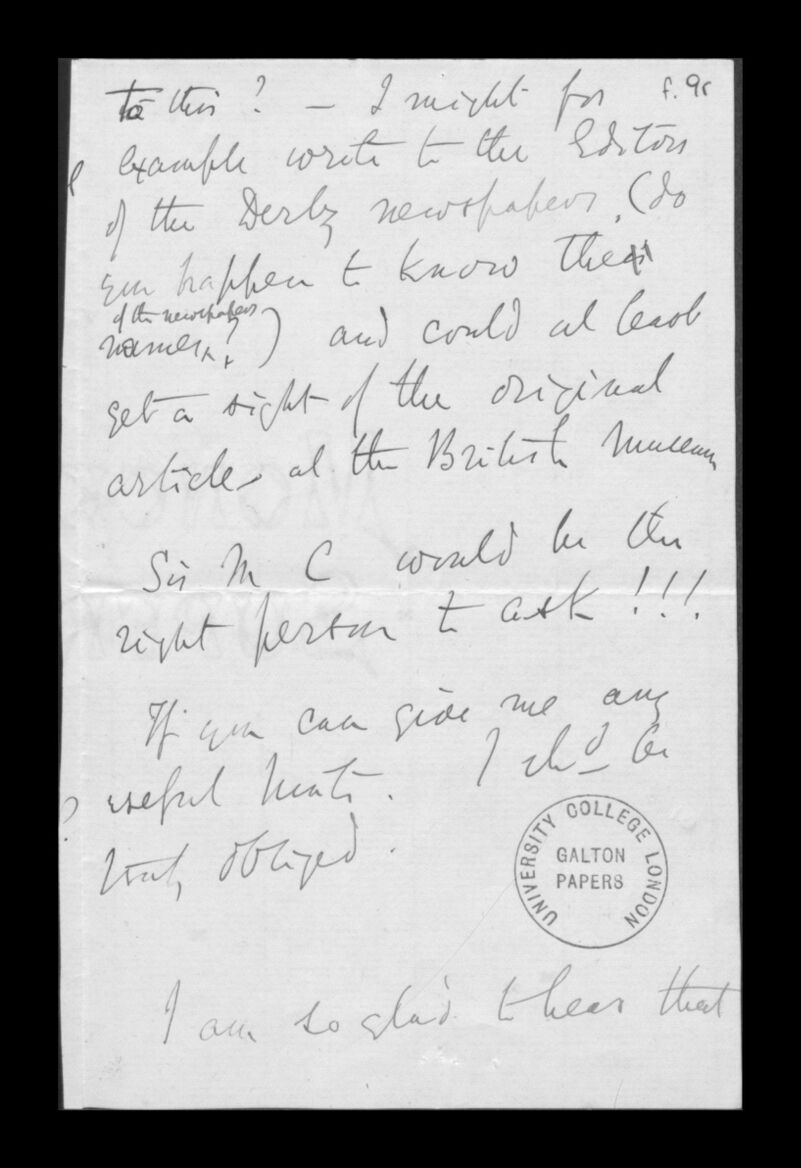 f. 9r
to this? — I might for
example write to the Editors
of the Derby newspapers, (do
you happen to know the
of the newspapers
names?) and could at least
get a sight of the original
articles at the British Museum
Sir M C would be the
right person to ask!!!
If you can give me any
useful hints. I shd be
truly obliged.
UNIVERSITY COLLEGE LONDON
GALTON
PAPERS
I am so glad to hear that